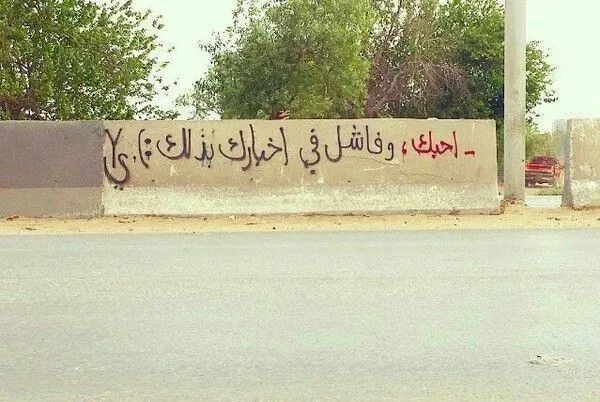 - احبك ، وفاشل في اخبارك بذلك :(